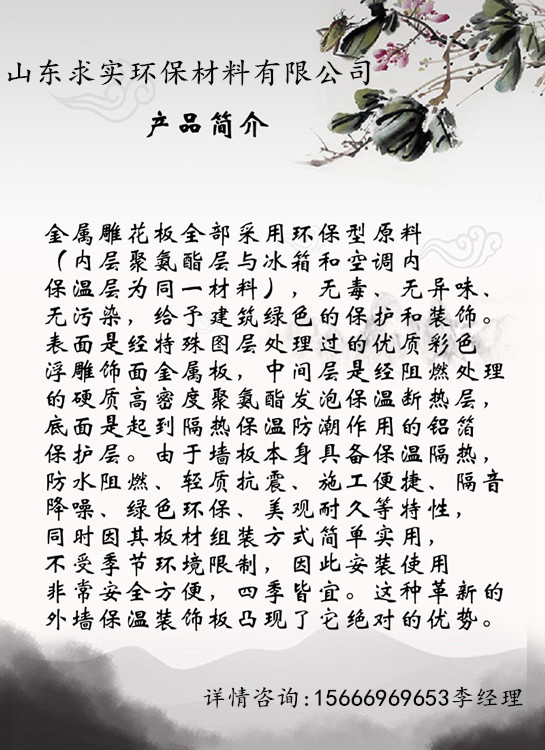 山东求实环保材料有限公司
产品简介
金属雕花板全部采用环保型原料
（内层聚氨酯层与冰箱和空调内
保温层为同一材料），无毒、无异味、
无污染，给予建筑绿色的保护和装饰。
表面是经特殊图层处理过的优质彩色
浮雕饰面金属板，中间层是经阻燃处理
的硬质高密度聚氨酯发泡保温断热层，
底面是起到隔热保温防潮作用的铝箔
保护层。由于墙板本身具备保温隔热，
防水阻燃、轻质抗震、施工便捷、隔音
降噪、绿色环保、美观耐久等特性，
同时因其板材组装方式简单实用，
不受季节环境限制，因此安装使用
非常安全方便，四季皆宜。这种革新的
外墙保温装饰板凸现了它绝对的优势。
详情咨询:15666969653李经理